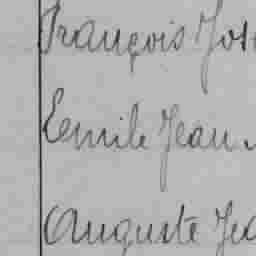 François Jos
Emile Jean
Auguste Jea